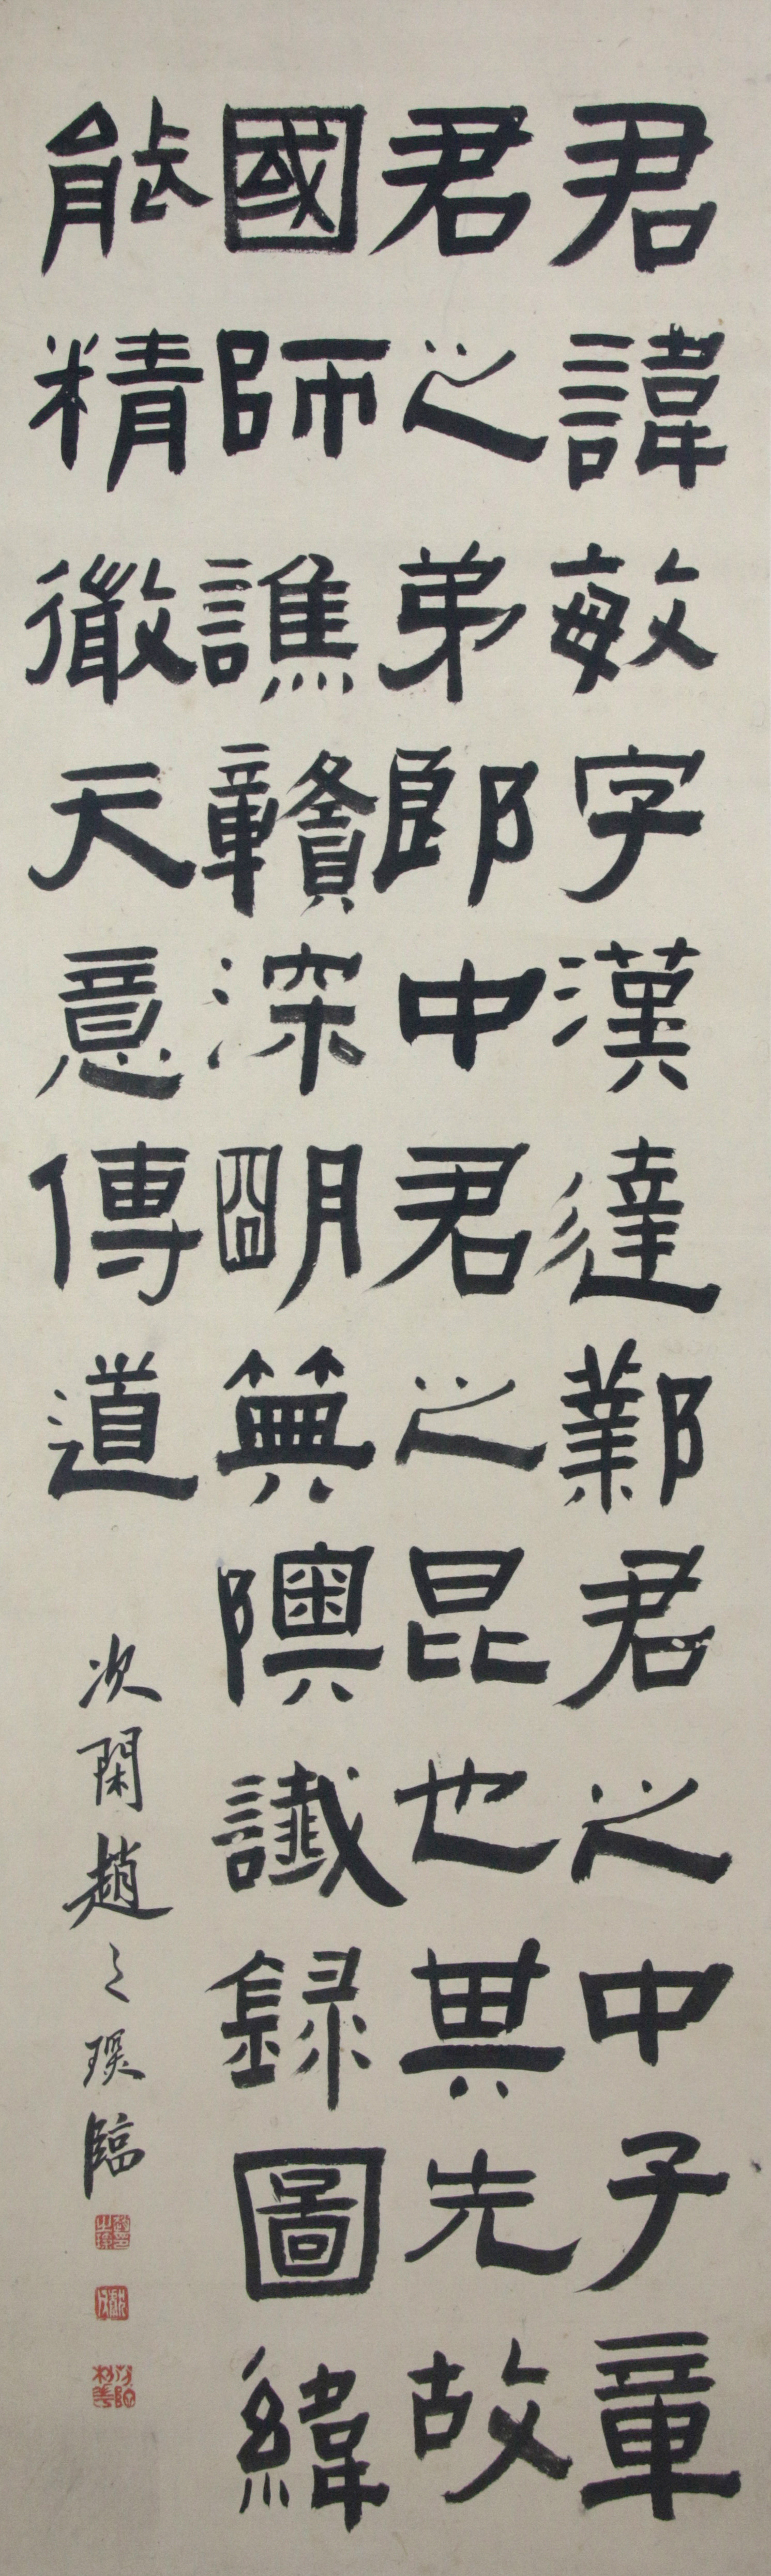 君諱敏字漢達鄴君之中子章
君之弟郎中君之昆也其先故
國師譙贛深明典隩讖録圖緯
能精徵天意傳道
次閑趙之琛臨